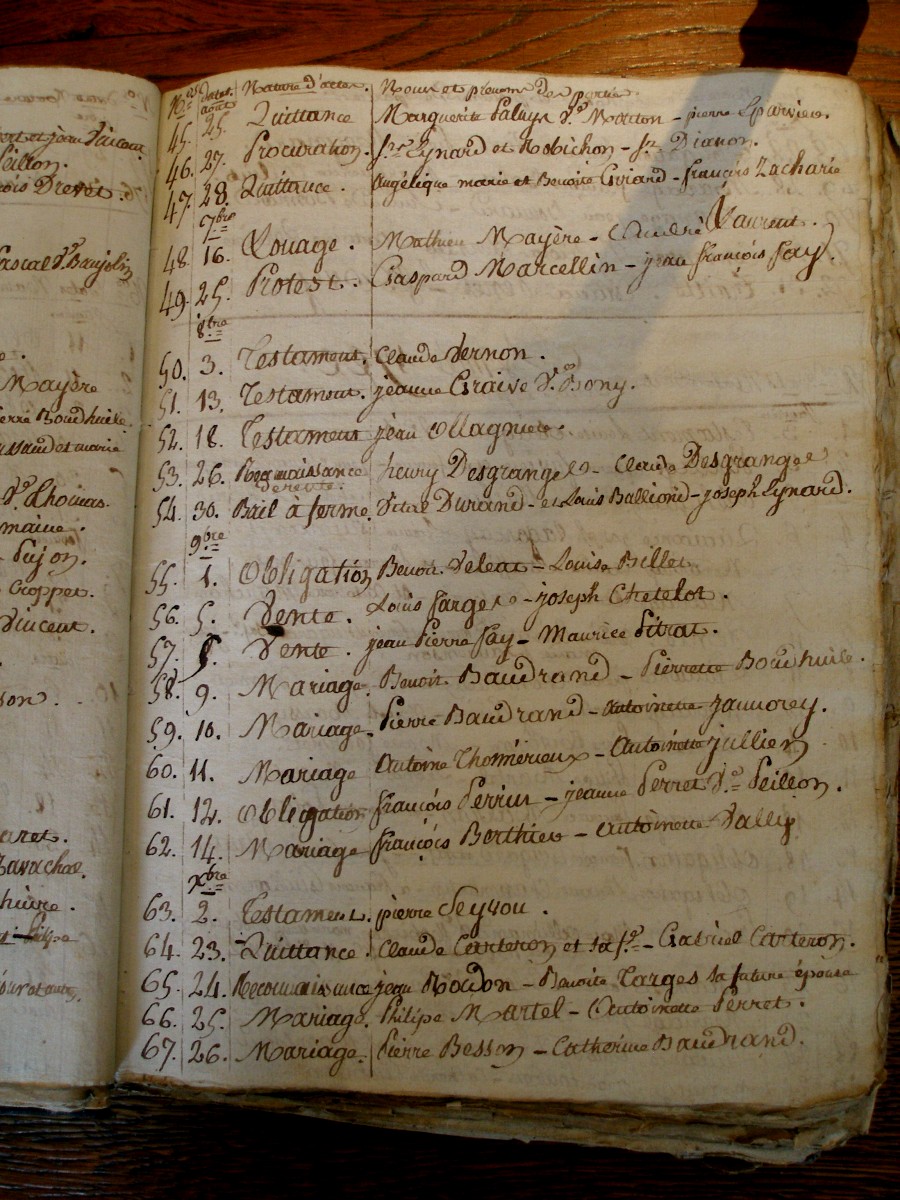 Vincent
Peillon.
Drevet.
Pascal
Mayère
Pierre Boudhuile
et marie
Thomas.
Pujon.
Croppet.
Vincent.
N.os dates Nature d'actes. Noms et prénoms des parties
août
45. 25. Quittance Marguerite v.e Mouton - pierre Eparvier.
46. 27. Procuration. Eynard et Robichon - Dianon.
47. 28. Quittance. Angélique marie et Benoite - françois Zacharie
7.bre
48. 16. Louage. Mathieu Mayère - André Laurent.
49. 25. Protest. Gaspard Marcellin - jean françois fay.
8.bre
50. 3. Testament. Claude Vernon.
51. 13. Testament. jeanne Graive V.e Bony.
52. 18. Testament jean Ollagnier.
53. 26. Reconnaissance henry Desgranges - Claude Desgranges
de rente.
54. 30. Bail à ferme. Vital Durand - et Louis Balliond - joseph Eynard.
9.bre
55. 1. Obligation Benoit - Louis Billet
56. 5. Vente. Louis farges - joseph Chetelot.
57. 5. Vente. jean Pierre fay - Maurice Pitrat.
58. 9. Mariage. Benoit Baudrand - Pierrette Boudhuile.
59. 10. Mariage. Pierre Baudrand - Antoinette
60. 11. Mariage Antoine Thomérieux - Antoinette jullien
61. 12. Obligation françois Perrin - jeanne Perret V.e Peillon.
62. 14. Mariage françois Berthier - Antoinette Vally
X.bre
63. 2. Testament. pierre Seyvou.
64. 23. Quittance. Claude Carteron et sa f.e - Gabriel Carteron.
65. 24. Reconnaissance jean Roudon - Benoite Targes sa future épouse
66. 25. Mariage. Philipe Martel - Antoinette Perret.
67. 26. Mariage. Pierre Besson - Catherine Baudrand.